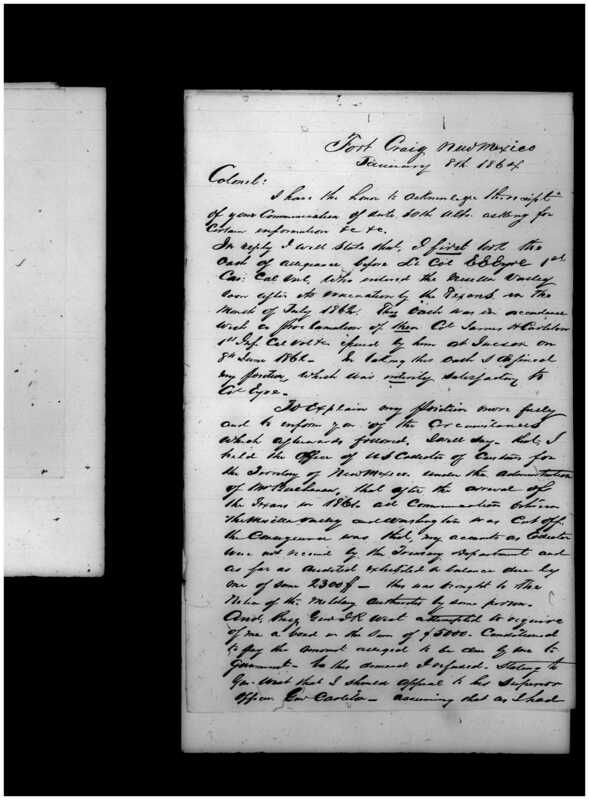 Fort Craig New Mexico
January 8th 1864
Colonel:
I have the honor to acknowledge the receipt
of your Communication of date 30th Ulto. asking for
Certain information &c &c.
In reply I will state that, I first took the
oath of allegiance, before Lt Col E E Eyre 1st
Cav: Cal Vol, Who entered the Mesilla Valley
soon after its evacuation by the Texans, in the
Month of July 1862. This oath was in accordance
with a proclamation of then Col James H Carleton
1st Inf. Cal Vol & issued by him at Tucson on
8th June 1862 - In taking this oath I defined
my position, which was entirely satisfactory to
Col Eyre.
To explain my position more fully
and to inform you of the Circumstances
which afterwards followed, I will say - that, I
held the office of US Collector of Customs for
the Territory of New Mexico under the administration
of Mr Buchanan, that after the arrival of
the Texans in 1861 all Communication between
The Mesilla Valley and Washington was Cut off.
the Consequence was that, my accounts as Collector
were not received by the Treasury Department and
as far as audited exhibited a balance due by
me of some 2300$ - this was brought to the
Notice of the Military authorities by some person.
And, Brig. Genl J R West attempted to require
of me a bond in the sum of $5000. Conditioned
to pay the amount alleged to be due by me to
Government - to this demand I refused. Stating to
Gen. West that I should appeal to his Superior
Officer Genl Carleton - assuming that as I had